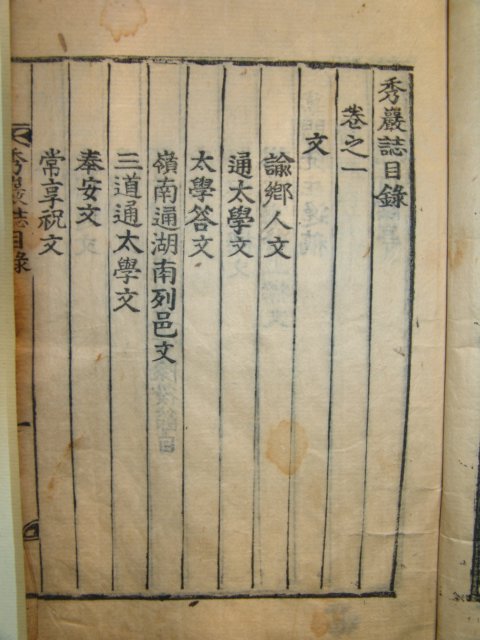 秀巖誌目錄
卷之一
文
諭鄉人文
通太學文
太學答文
嶺南通湖南列邑文
三道通太學文
奉安文
常享祝文
秀巖誌目錄
一